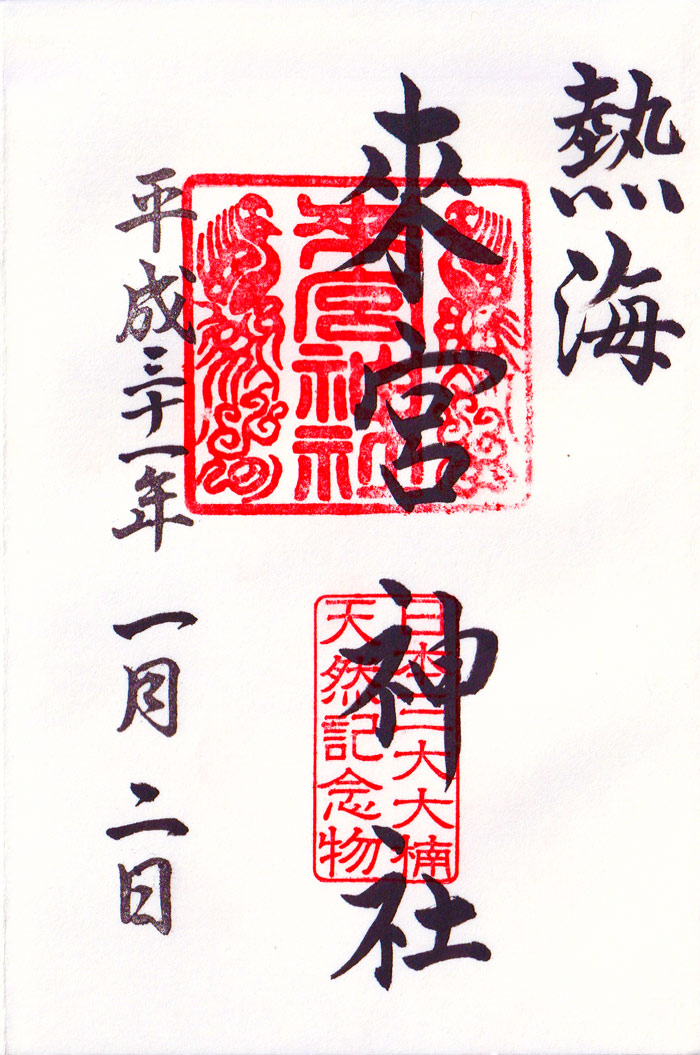 熱海
來宮神社
平成三十一年一月二日
來宮神社
日本三大大楠
天然記念物